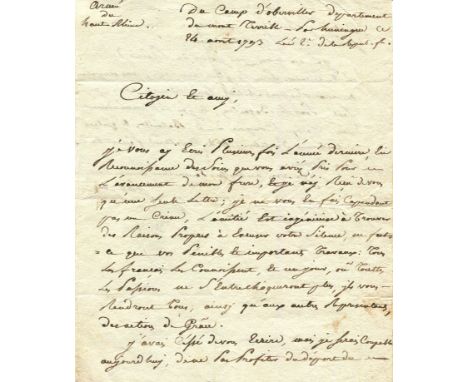 Armée
du
haut Rhin.
Du Camp d'oberviller Département
du mont Terrible - Par huningue ce
24 aout 1793 L'an 2e de la Repub. fse
Citoyen Et amy,
je vous ay Ecrit Plusieurs fois L'année derniere, En
Reconnaissance des soins que vous aviés Pris Pour
L'avancement de mon frere, Et je n'ay Reçu de vous
qu'une seule Lettre ; je ne vous En fais Cependant
pas un Crime, L'amitié Est ingenieuse à Trouver
des Raisons Propres à Excuser votre Silence, ne fut-
ce que vos Penibles Et importants Travaux : Tous
Les francois Les Connaissent, Et un jour, où Toutes
Les Passions ne s'Entrechoqueront plus, ils vous
Rendront Tous, ainsy qu'aux autres Representans,
des action de Grace.
j'avais Cessé de vous Ecrire, mais je serais Coupable
aujourd'huy, de ne Pas Profiter du départ du